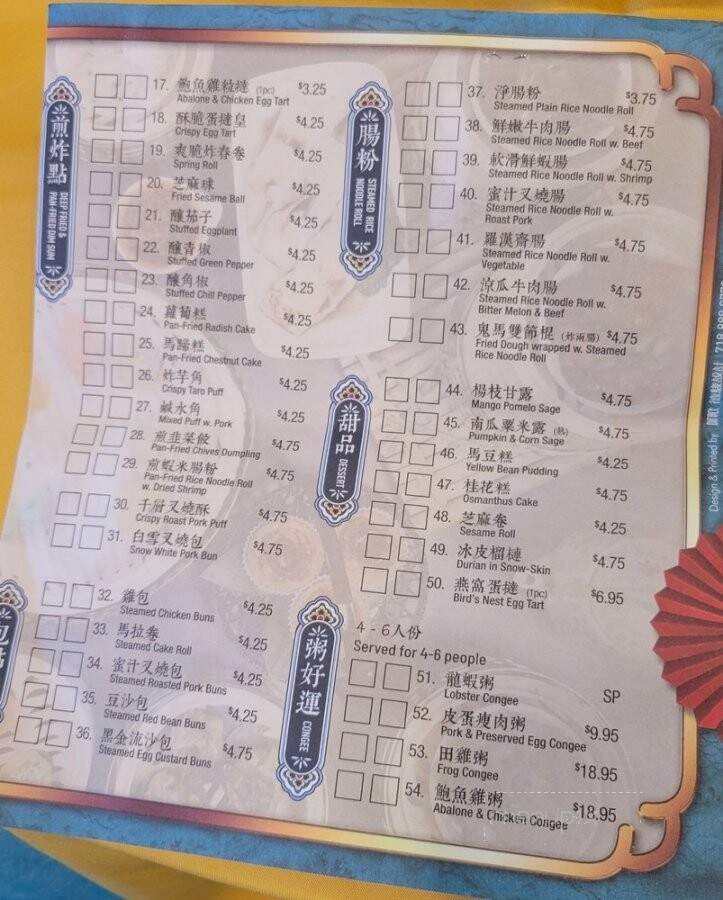 煎炸點
DEEP FRIED &
PAN-FRIED DIM SUM
17. 鮑魚雞粒撻 (1pc) $3.25
Abalone & Chicken Egg Tart
18. 酥脆蛋撻皇 $4.25
Crispy Egg Tart
19. 爽脆炸春卷 $4.25
Spring Roll
20. 芝麻球 $4.25
Fried Sesame Ball
21. 釀茄子 $4.25
Stuffed Eggplant
22. 釀青椒 $4.25
Stuffed Green Pepper
23. 釀角椒 $4.25
Stuffed Chill Pepper
24. 蘿蔔糕 $4.25
Pan-Fried Radish Cake
25. 馬蹄糕 $4.25
Pan-Fried Chestnut Cake
26. 炸芋角 $4.25
Crispy Taro Puff
27. 鹹水角 $4.25
Mixed Puff w. Pork
28. 煎韭菜餃 $4.75
Pan-Fried Chives Dumpling
29. 煎蝦米腸粉 $4.75
Pan-Fried Rice Noodle Roll
w. Dried Shrimp
30. 千層叉燒酥 $4.75
Crispy Roast Pork Puff
31. 白雪叉燒包 $4.75
Snow White Pork Bun
32. 雞包 $4.25
Steamed Chicken Buns
33. 馬拉卷 $4.25
Steamed Cake Roll
34. 蜜汁叉燒包 $4.25
Steamed Roasted Pork Buns
35. 豆沙包 $4.25
Steamed Red Bean Buns
36. 黑金流沙包 $4.75
Steamed Egg Custard Buns
腸粉
STEAMED RICE
NOODLE ROLL
37. 淨腸粉 $3.75
Steamed Plain Rice Noodle Roll
38. 鮮嫩牛肉腸 $4.75
Steamed Rice Noodle Roll w. Beef
39. 軟滑鮮蝦腸 $4.75
Steamed Rice Noodle Roll w. Shrimp
40. 蜜汁叉燒腸 $4.75
Steamed Rice Noodle Roll w.
Roast Pork
41. 羅漢齋腸 $4.75
Steamed Rice Noodle Roll w.
Vegetable
42. 涼瓜牛肉腸 $4.75
Steamed Rice Noodle Roll w.
Bitter Melon & Beef
43. 鬼馬雙節棍 (炸兩腸) $4.75
Fried Dough wrapped w. Steamed
Rice Noodle Roll
甜品
DESSERT
44. 楊枝甘露 $4.75
Mango Pomelo Sage
45. 南瓜粟米露 (熱) $4.75
Pumpkin & Corn Sage
46. 馬豆糕 $4.25
Yellow Bean Pudding
47. 桂花糕 $4.75
Osmanthus Cake
48. 芝麻卷 $4.25
Sesame Roll
49. 冰皮榴槤 $4.75
Durian in Snow-Skin
50. 燕窩蛋撻 (1pc) $6.95
Bird's Nest Egg Tart
粥好運
CONGEE
4-6人份
Served for 4-6 people
51. 龍蝦粥 SP
Lobster Congee
52. 皮蛋瘦肉粥 $9.95
Pork & Preserved Egg Congee
53. 田雞粥 $18.95
Frog Congee
54. 鮑魚雞粥 $18.95
Abalone & Chicken Congee
Design & Printed by